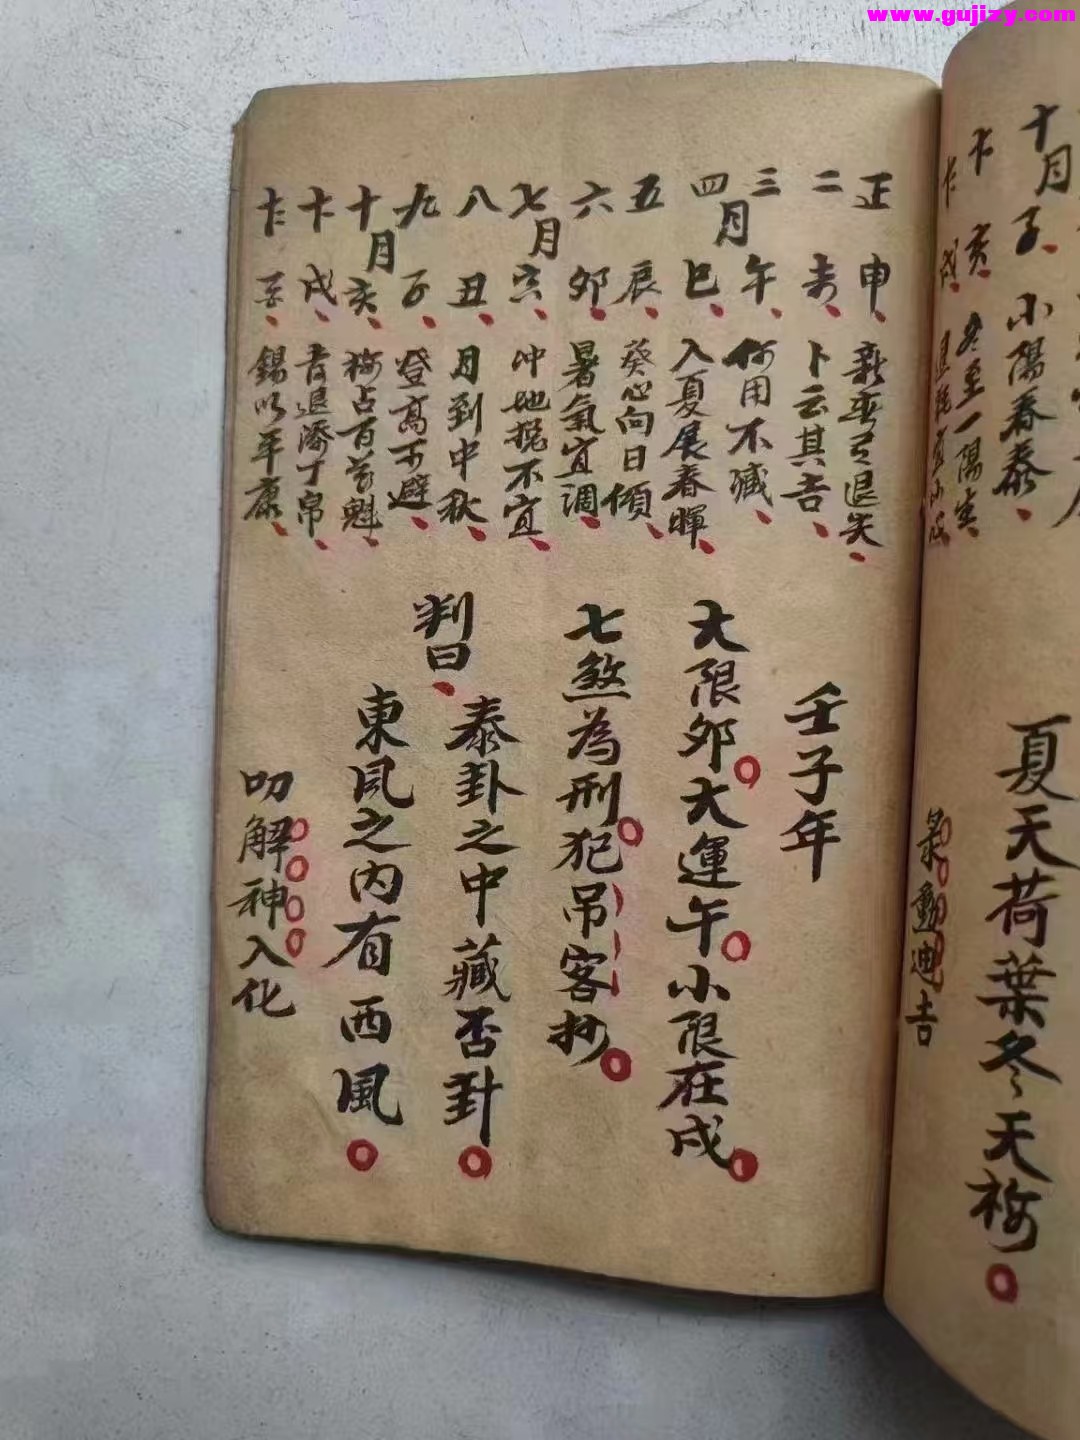 www.gujizy.com
十月 子 小陽春泰
亥 冬至一陽生
戌
夏天荷葉冬天梅
迪吉
正 申 退矣
二 未 卜云其吉
三 午 何用不臧
四月 巳 入夏展春暉
五 辰 葵心向日傾
六 卯 暑氣宜調
七月 寅 冲地挠不宜
八 丑 月到中秋
九 子 登高可避
十月 亥 梅占百花魁
戌 青退添丁帛
錫以年康
壬子年
大限卯大運午小限在戌
七煞為刑犯吊客抄
判曰
泰卦之中藏否卦
東風之内有西風
叨解神入化